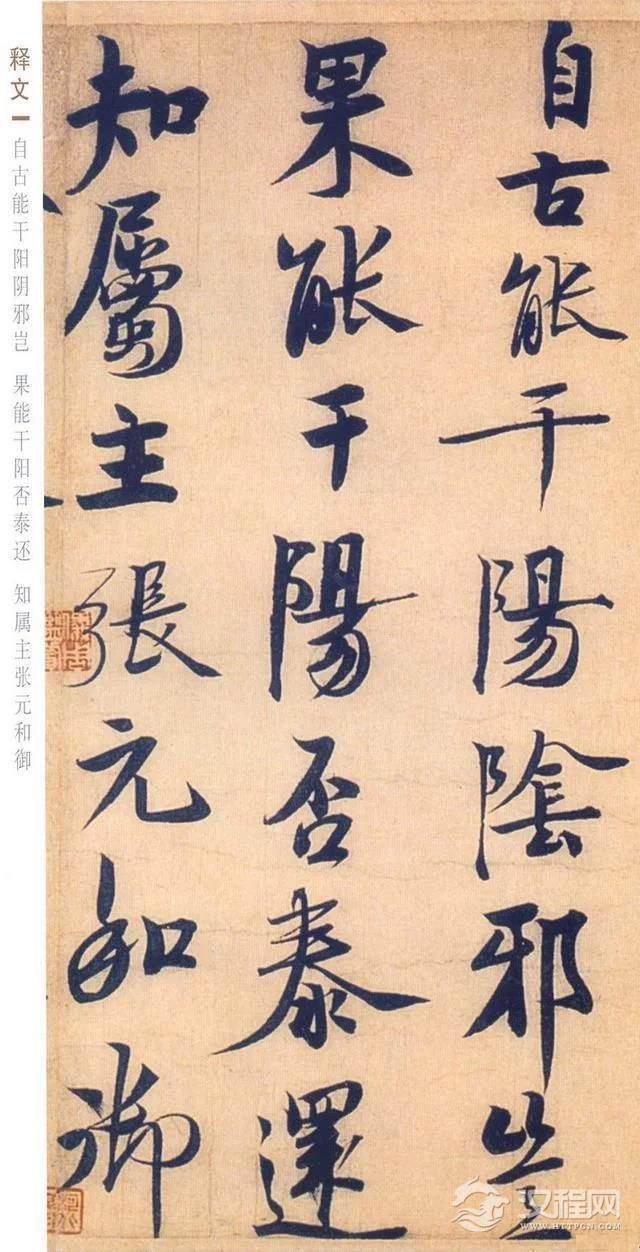 自古能干陽陰邪豈
果能干陽否泰還
知屬主張元和御
释文
自古能干阳阴邪岂 果能干阳否泰还 知属主张元和御
汉程网
HTTPCN.COM